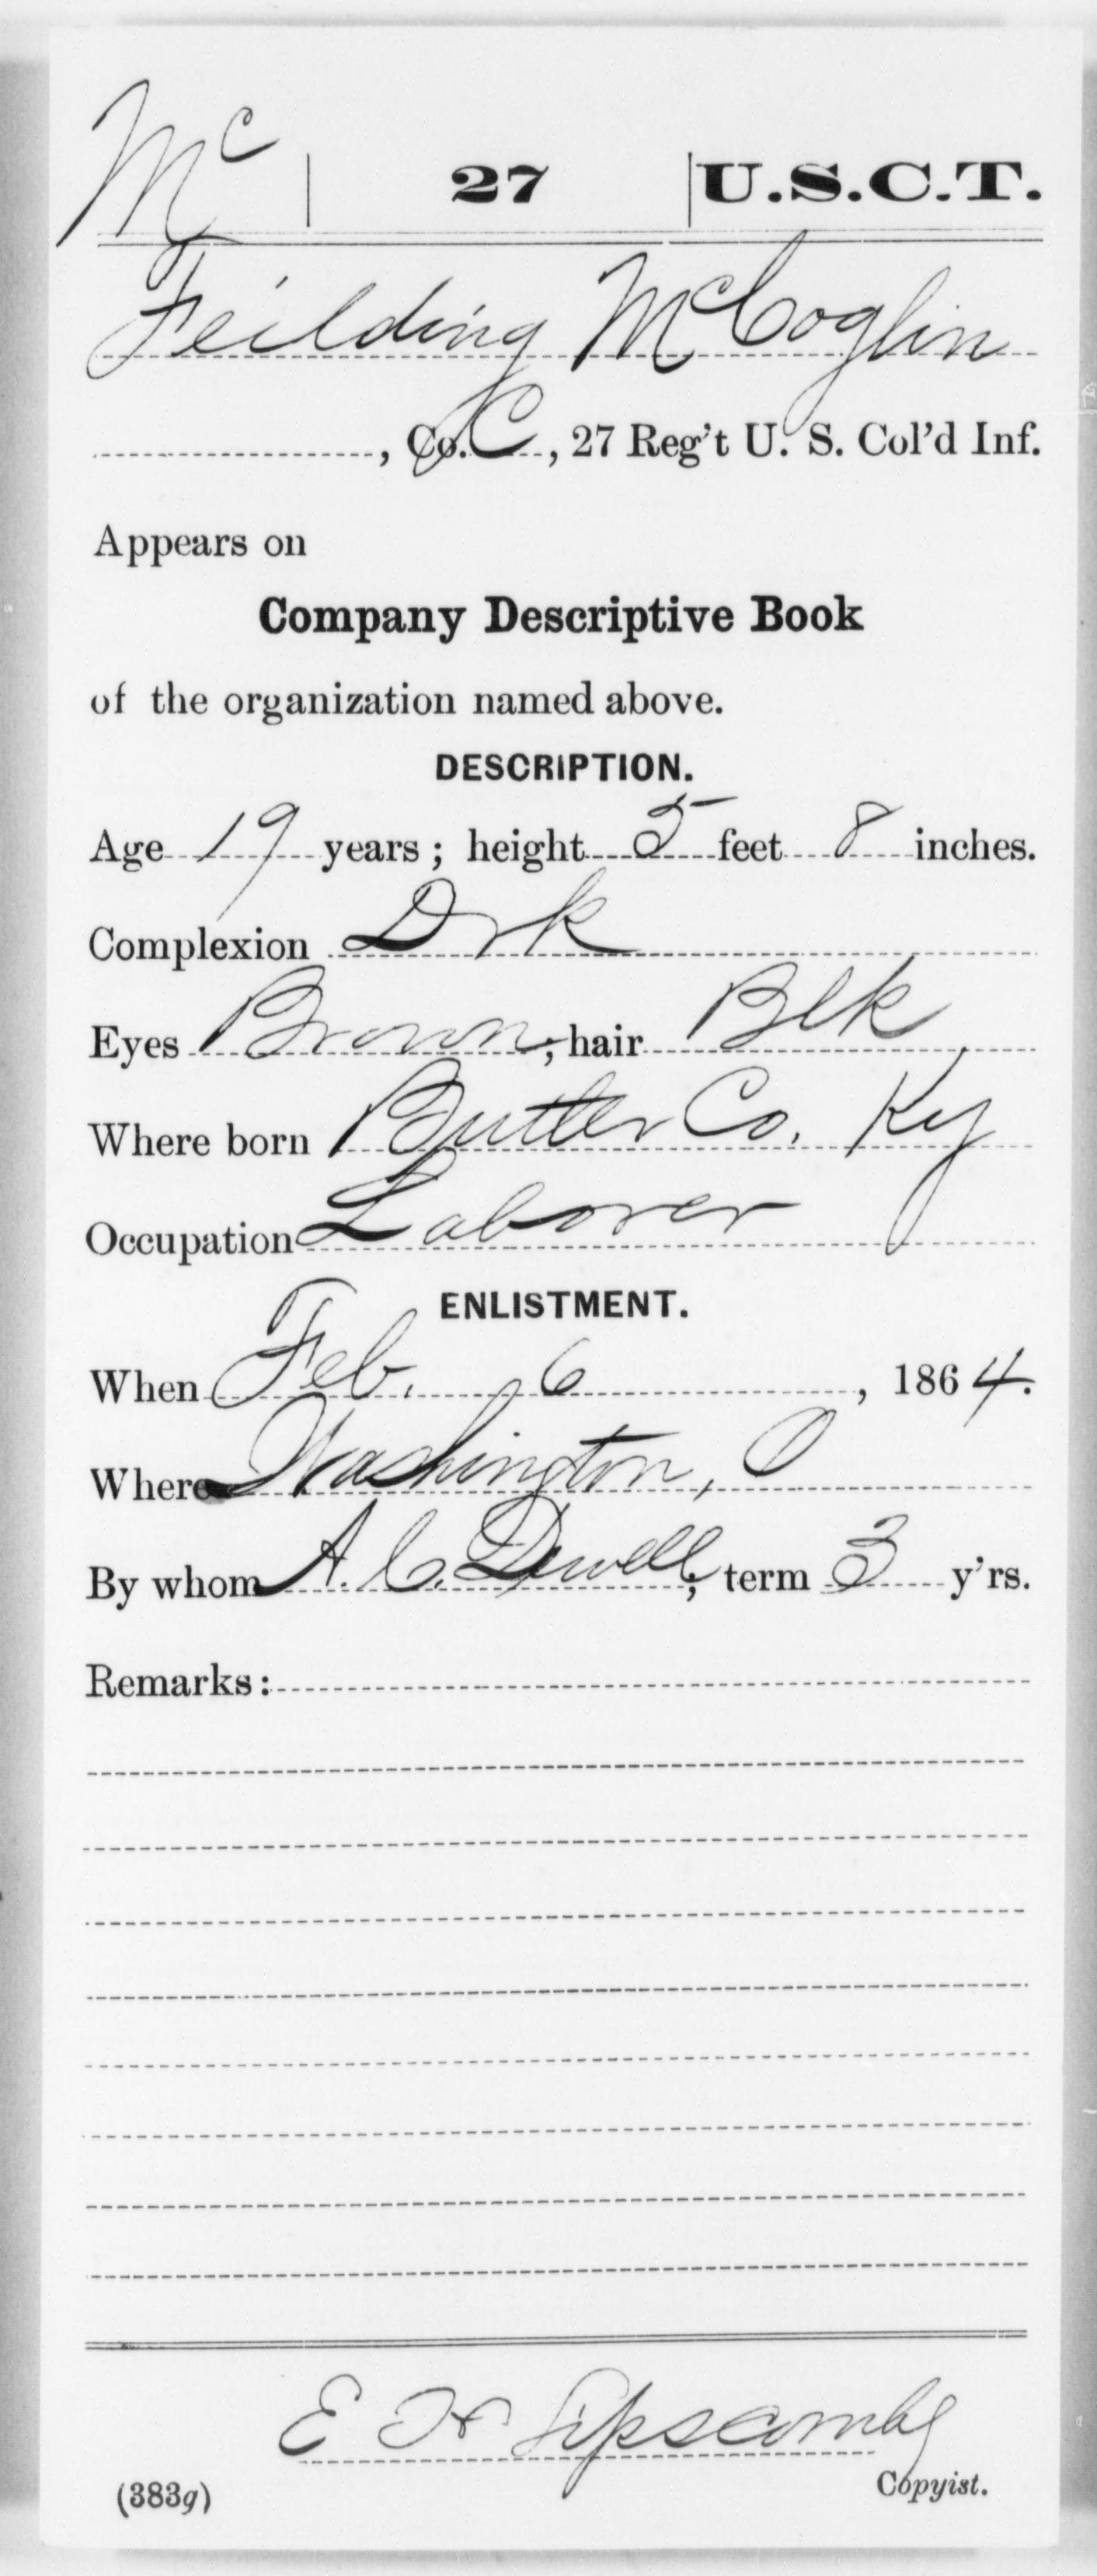 Mc 27 U.S.C.T.
Feilding McCoglin
, Co. C, 27 Reg't U. S. Col'd Inf.
Appears on
Company Descriptive Book
of the organization named above.
DESCRIPTION.
Age 19 years; height 5 feet 8 inches.
Complexion Drk
Eyes Brown; hair Blk
Where born Butler Co. Ky
Occupation Laborer
ENLISTMENT.
When Feb. 6, 1864.
Where Washington, O
By whom A. C. Dewell; term 3 y'rs.
Remarks:
E H Lipscomb
Copyist.
(383g)